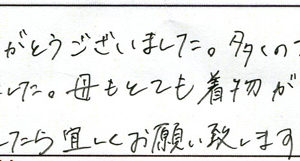 がとうございました。多くの
した。母もとても着物が
したら宜しくお願い致します